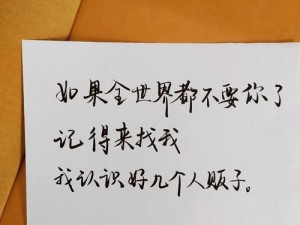 如果全世界都不要你了
记得来找我
我认识好几个人贩子。